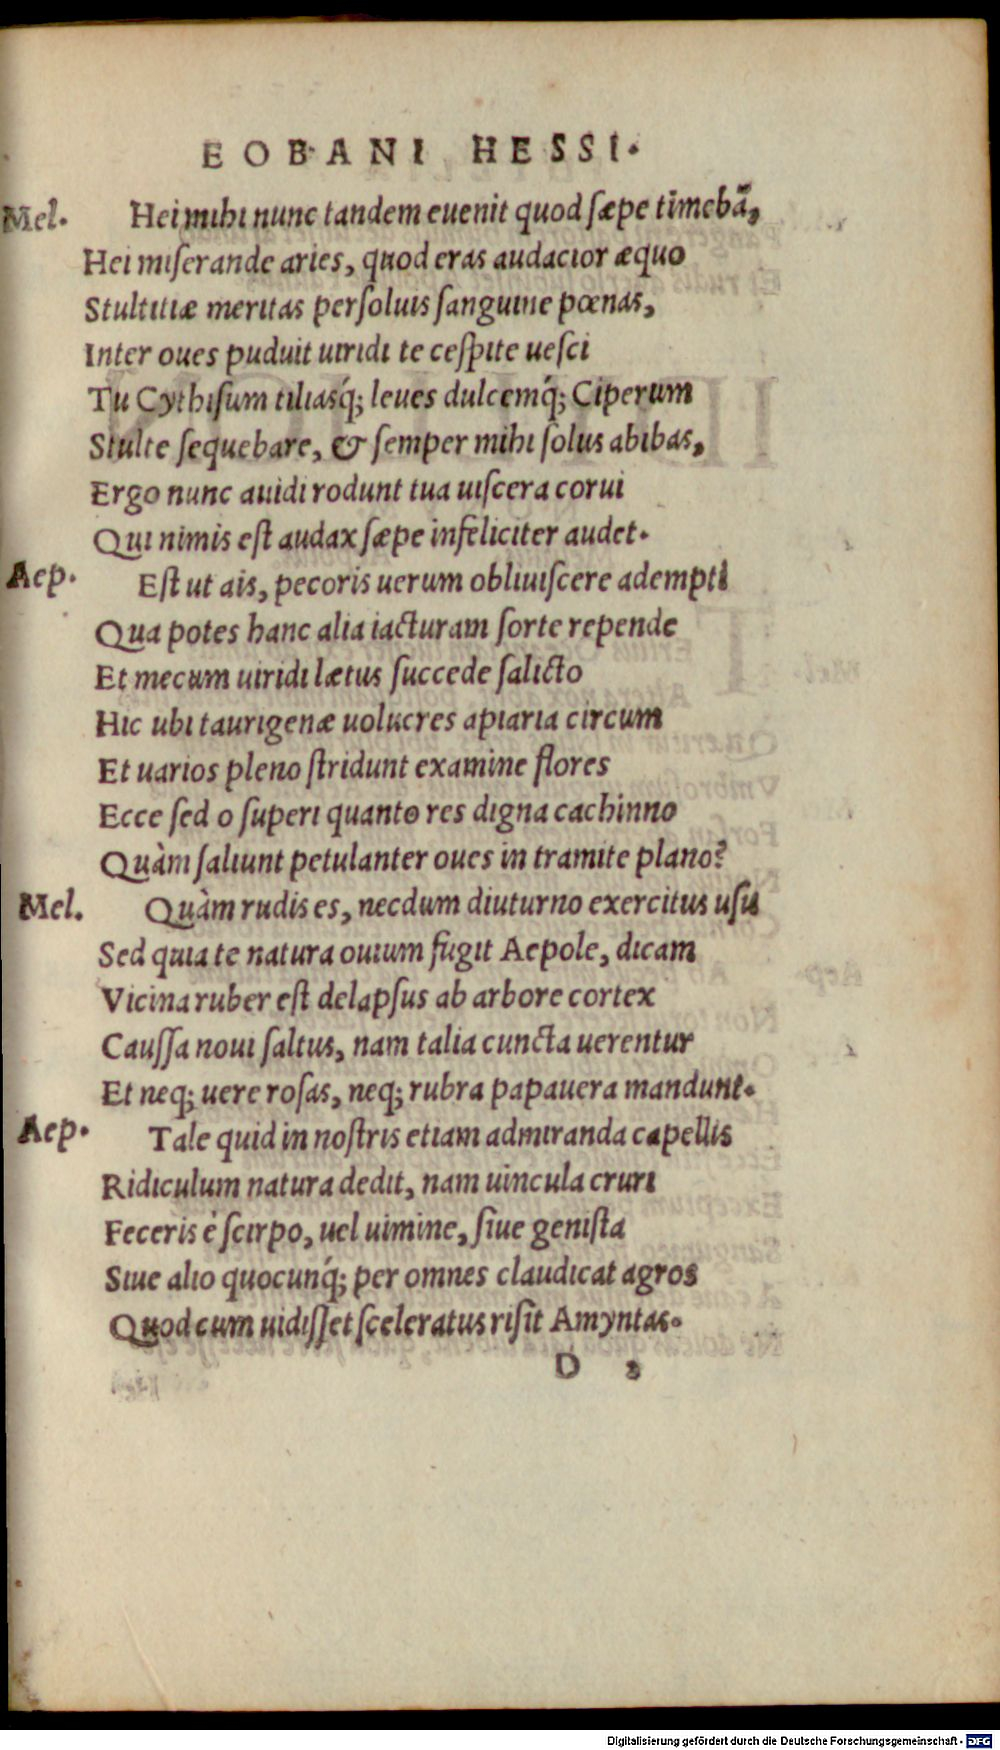 EOBANI HESSI.
Mel. Hei mihi nunc tandem euenit quod sæpe timebā,
Hei miserande aries, quod eras audacior æquo
Stultitiæ meritas persoluis sanguine pœnas,
Inter oues puduit uiridi te cespite uesci
Tu Cythisum tiliasq́; leues dulcemq́; Ciperum
Stulte sequebare, & semper mihi solus abibas,
Ergo nunc auidi rodunt tua uiscera corui
Qui nimis est audax sæpe infeliciter audet.
Aep. Est ut ais, pecoris uerum obliuiscere adempti
Qua potes hanc alia iacturam sorte repende
Et mecum uiridi lætus succede salicto
Hic ubi taurigenæ uolucres apiaria circum
Et uarios pleno stridunt examine flores
Ecce sed o superi quanto res digna cachinno
Quàm saliunt petulanter oues in tramite plano?
Mel. Quàm rudis es, necdum diuturno exercitus usu
Sed quia te natura ouium fugit Aepole, dicam
Vicina ruber est delapsus ab arbore cortex
Caussa noui saltus, nam talia cuncta uerentur
Et neq; uere rosas, neq; rubra papauera mandunt.
Aep. Tale quid in nostris etiam admiranda capellis
Ridiculum natura dedit, nam uincula cruri
Feceris è scirpo, uel uimine, siue genista
Siue alio quocunq́; per omnes claudicat agros
Quod cum uidisset sceleratus risit Amyntas.
D 2
Digitalisierung gefördert durch die Deutsche Forschungsgemeinschaft - DFG